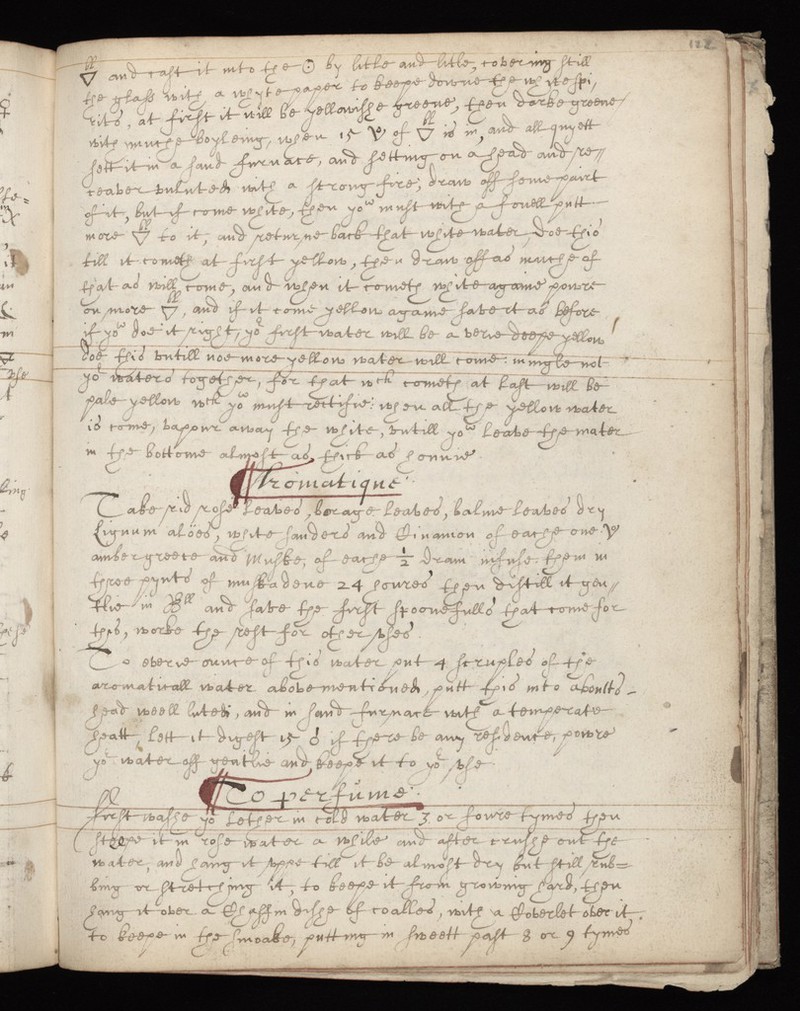 122
▽ and cast it into the ☉ by litle and litle, covering still
the glass with a whyte paper to keepe downe the white spi,
rits, at first it will be yellowishe greene, then darke greene
with muche boyleing, when 15 of ▽ is in, and all quyett
sett it in a sand furnace, and setting on a head and re//
ceaver vnluted with a strong fire, draw off some pairt
of it, but if come white, then yow must with a fonell putt
more ▽ to it, and returne back that white water, Doe this
till it cometh at first yellow, then draw off as muche of
that as will come, and when it cometh white againe powre
on more ▽, and if it come yellow againe save it as before
if yow doe it right, yor first water will be a verie deepe yellow
doe this vntill noe more yellow water will come: mingle not
yor waters together, for that wch cometh at last will be
pale yellow wch yow must rectifie: when all the yellow water
is come, vapour away the white, vntill yow leave the mater
in the bottome almost as thick as honnie.
Aromatique.
Take rid rose leaves, borage leaves, balme leaves dry
Lignum aloes, white sanders and Cinamon of eache one
ambergreece and Muske, of eache ½ dram infuse them in
three pynts of muskadene 24 houres then distill it gen//
tlie in and save the first spoonefulls that come for
this, worke the rest for other vses.
To everie ounce of this water put 4 scruples of the
aromaticall water abovementioned, putt this into a boults-
head weell luted, and in sand furnace with a temperate
heatt, lett it digest 15 d if there be any residence, powre
yor water off gentlie and keepe it to yor vse.
To perfume.
ffirst washe yor Lether in cold water 3 or foure tymes then
steepe it in rose water a while and after crushe out the
water, and hang it vppe till it be almost dry but still rub=
bing or stretching it, to keepe it from growing hard, then
hang it over a Chaffin dishe of coalles, with a Coverlet over it,
to keepe in the smoake, putting in sweett past 8 or 9 tymes